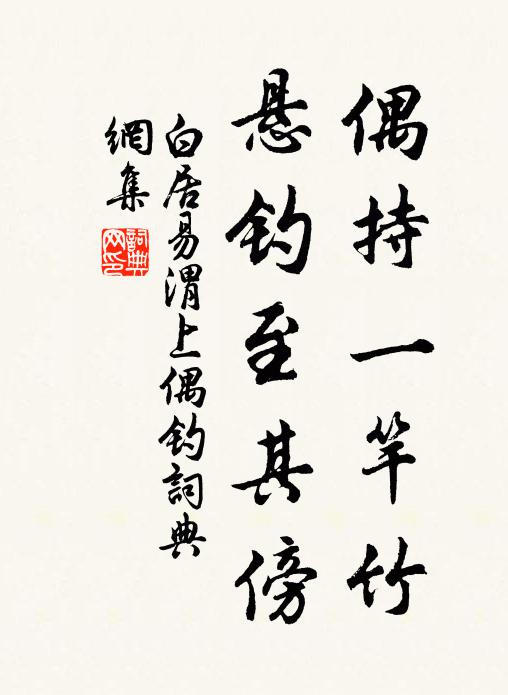 偶持一竿竹
悬钓至其傍
白居易渭上偶钓詞典
網集
詞典网印